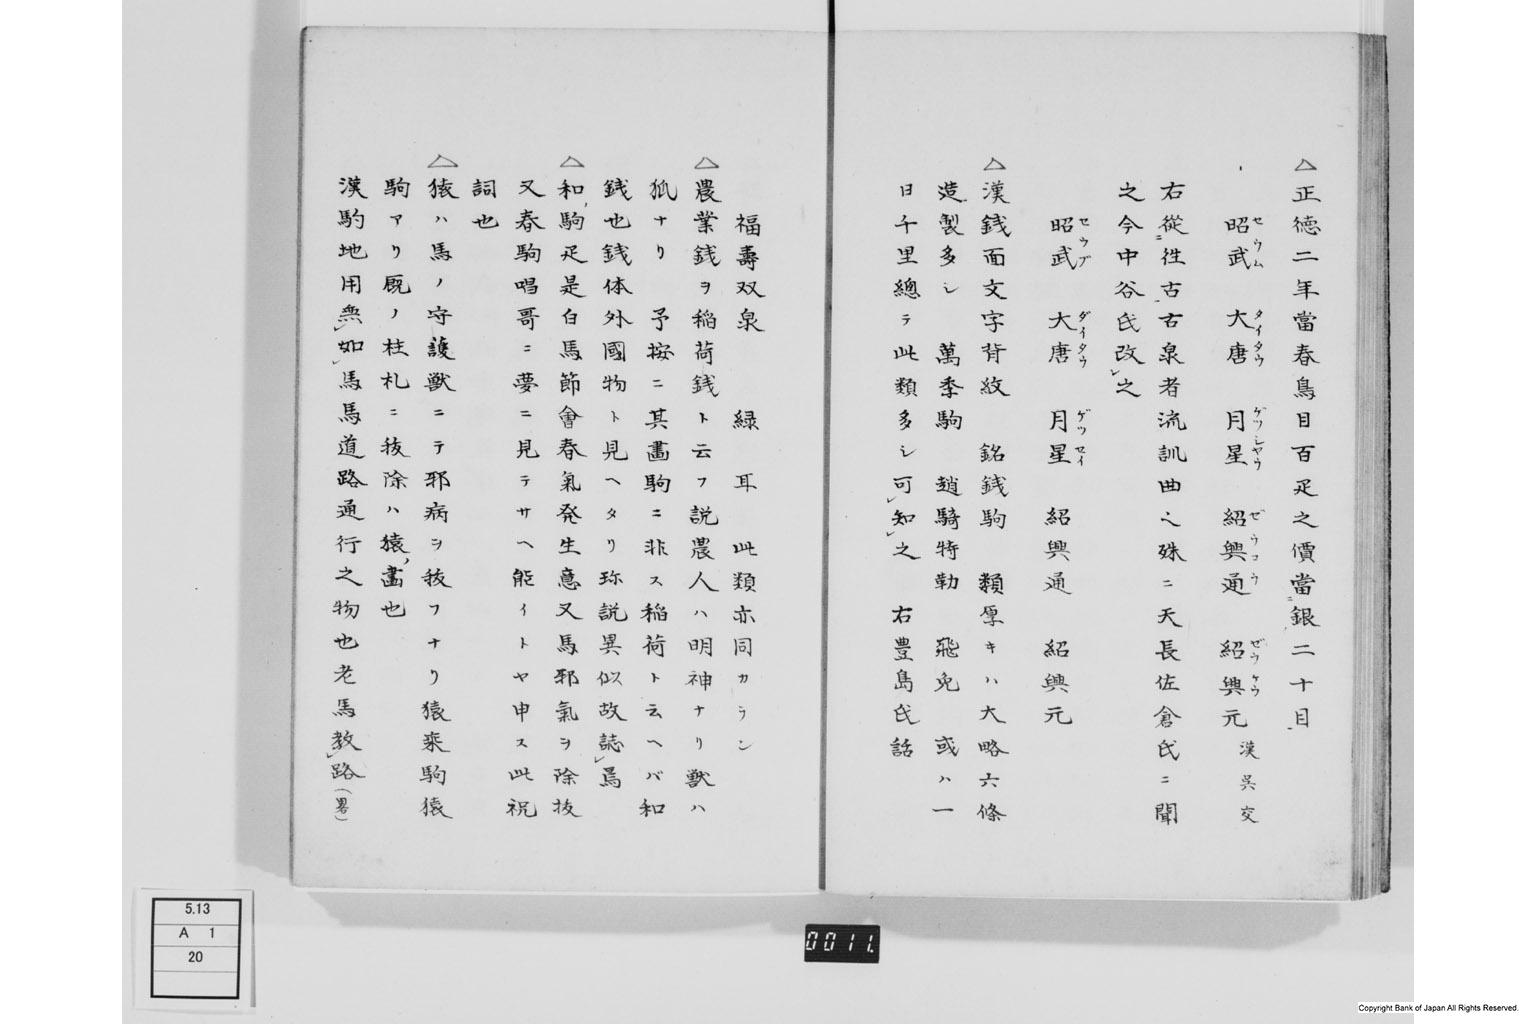 △正德二年當春鳥目百疋之價當ニ銀二十目
昭武 大唐 月星 紹興通 紹興元 漢呉交
セウム タイタウ ゲツシヤウ ゼウコウ ゼウケウ
右從ニ徃古古泉者流訓曲ヘ殊ニ天長佐倉氏ニ聞
之今中谷氏改レ之
昭武 大唐 月星 紹興通 紹興元
セウブ ダイタウ ゲツセイ
△漢銭面文字背紋 銘銭駒 類厚キハ大略六條
造製多シ 萬季駒 趙騎特勒 飛免 或ハ一
日千里總テ此類多シ可レ知レ之 右豊島氏話
福壽双泉 緑耳 此類亦同カラン
△農業銭ヲ稲荷銭ト云フ説農人ハ明神ナリ獣ハ
狐ナリ 予按ニ其畵駒ニ非ス稲荷ト云ヘバ和
銭也銭体外國物ト見ヘタリ珎説異似故誌レ爲
△和駒疋是白馬節會春氣発生意又馬邪氣ヲ除抜
又春駒唱哥ニ夢ニ見テサヘ能イトヤ申ス此祝
詞也
△猿ハ馬ノ守護獣ニテ邪病ヲ抜フナリ猿乘駒猿
駒アリ厩ノ柱札ニ抜除ハ猿畵也
漢駒地用無レ如レ馬馬道路通行之物也老馬教レ路(畧)
5.13
A 1
20
0011
Copyright Bank of Japan All Rights Reserved.